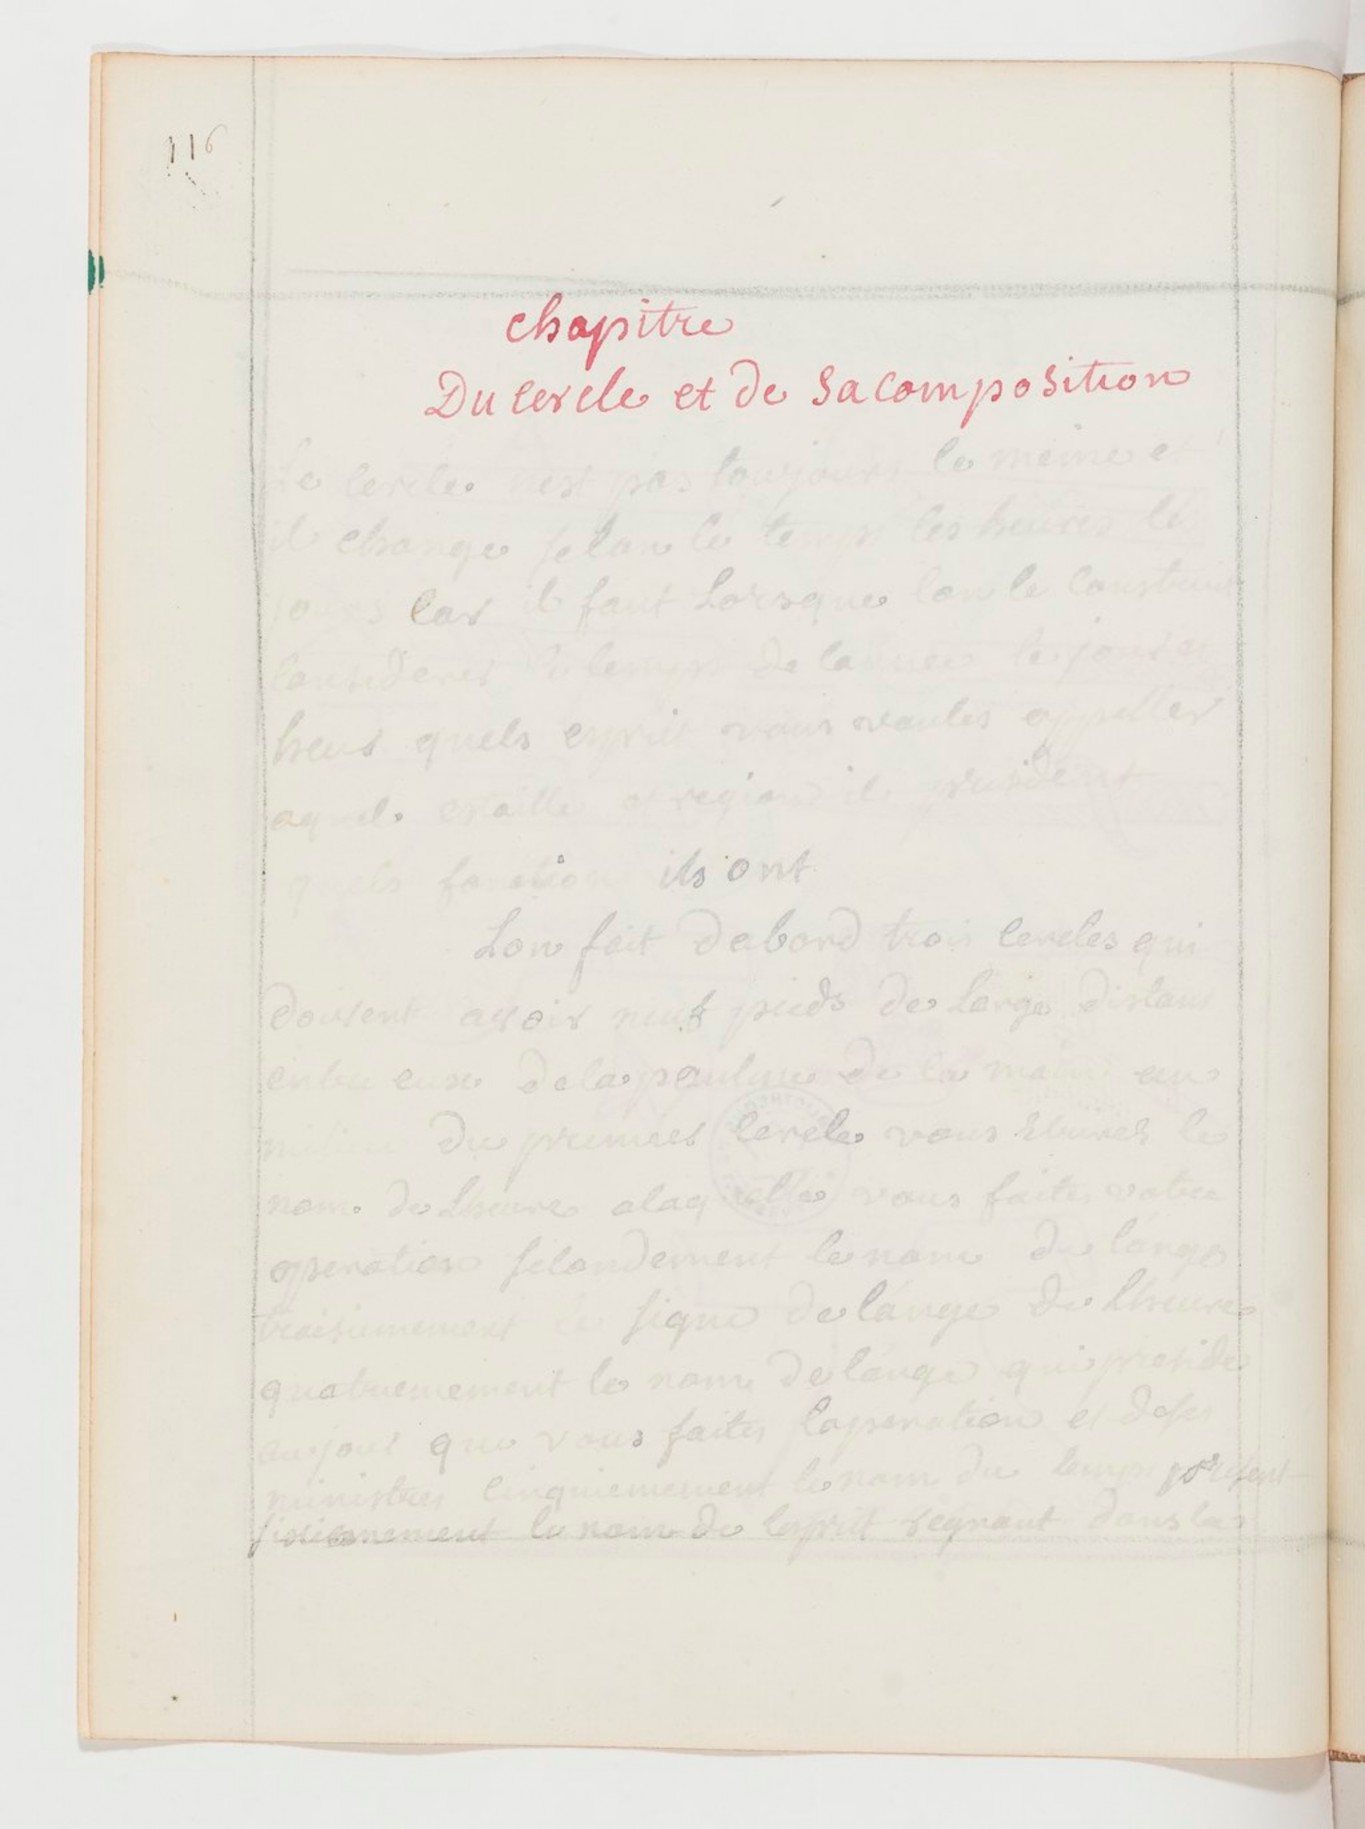 116
chapitre
Du cercle et de sa composition
Le cercle nest pas toujours le meme et
il change selon le temps les heures les
jours car il faut Lorsque lon le construit
considerer le temps de lannee le jour et
heur quels esprit vous voules appeller
aquel et region ils president
quels fonction ils ont
Lon fait dabord trois cercles qui
doivent avoir neuf pieds de large distant
entre eux de la paulme de la main au
milieu du premier cercle vous Ecures le
nom de Lheure alaquelle vous faites votre
operation secondement le nom de lange
troisiemement le signe de lange de Lheure
quatriemement le nom de lange qui preside
au jour que vous faites loperation et de ses
ministres cinquiemement le nom du temps present
sixiemement le nom de lesprit regnant dans la